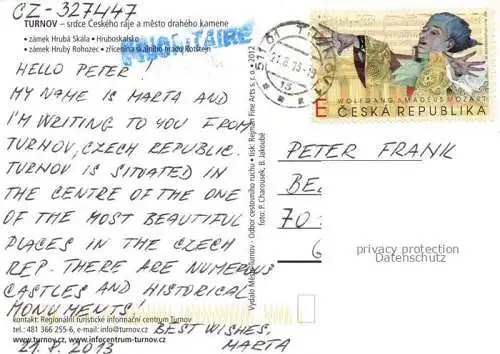 CZ-327447
TURNOV – srdce Českého ráje a město drahého kamene
• zámek Hrubá Skála • Hruboskalsko
• zámek Hrubý Rohozec • zřícenina skalního hradu Rotštejn
PRIORITAIRE
HELLO PETER!
MY NAME IS MARTA AND
I'M WRITING TO YOU FROM
TURNOV, CZECH REPUBLIC.
TURNOV IS SITUATED IN
THE CENTRE OF THE ONE
OF THE MOST BEAUTIFUL
PLACES IN THE CZECH
REP. THERE ARE NUMEROUS
CASTLES AND HISTORICAL
MONUMENTS!
kontakt: Regionální turistické informační centrum Turnov
tel.: 481 366 255-6, e-mail: info@turnov.cz
www.turnov.cz, www.infocentrum-turnov.cz
BEST WISHES,
21.7.2013 MARTA
Vydalo Město Turnov - Odbor cestovního ruchu • tisk: Rejman Fine Arts s.r.o. • 2012
foto: P. Charousek, B. Jakoubě
511 01 TURNOV
13
E WOLFGANG AMADEUS MOZART
ČESKÁ REPUBLIKA
PETER FRANK
BE
70
privacy protection
Datenschutz